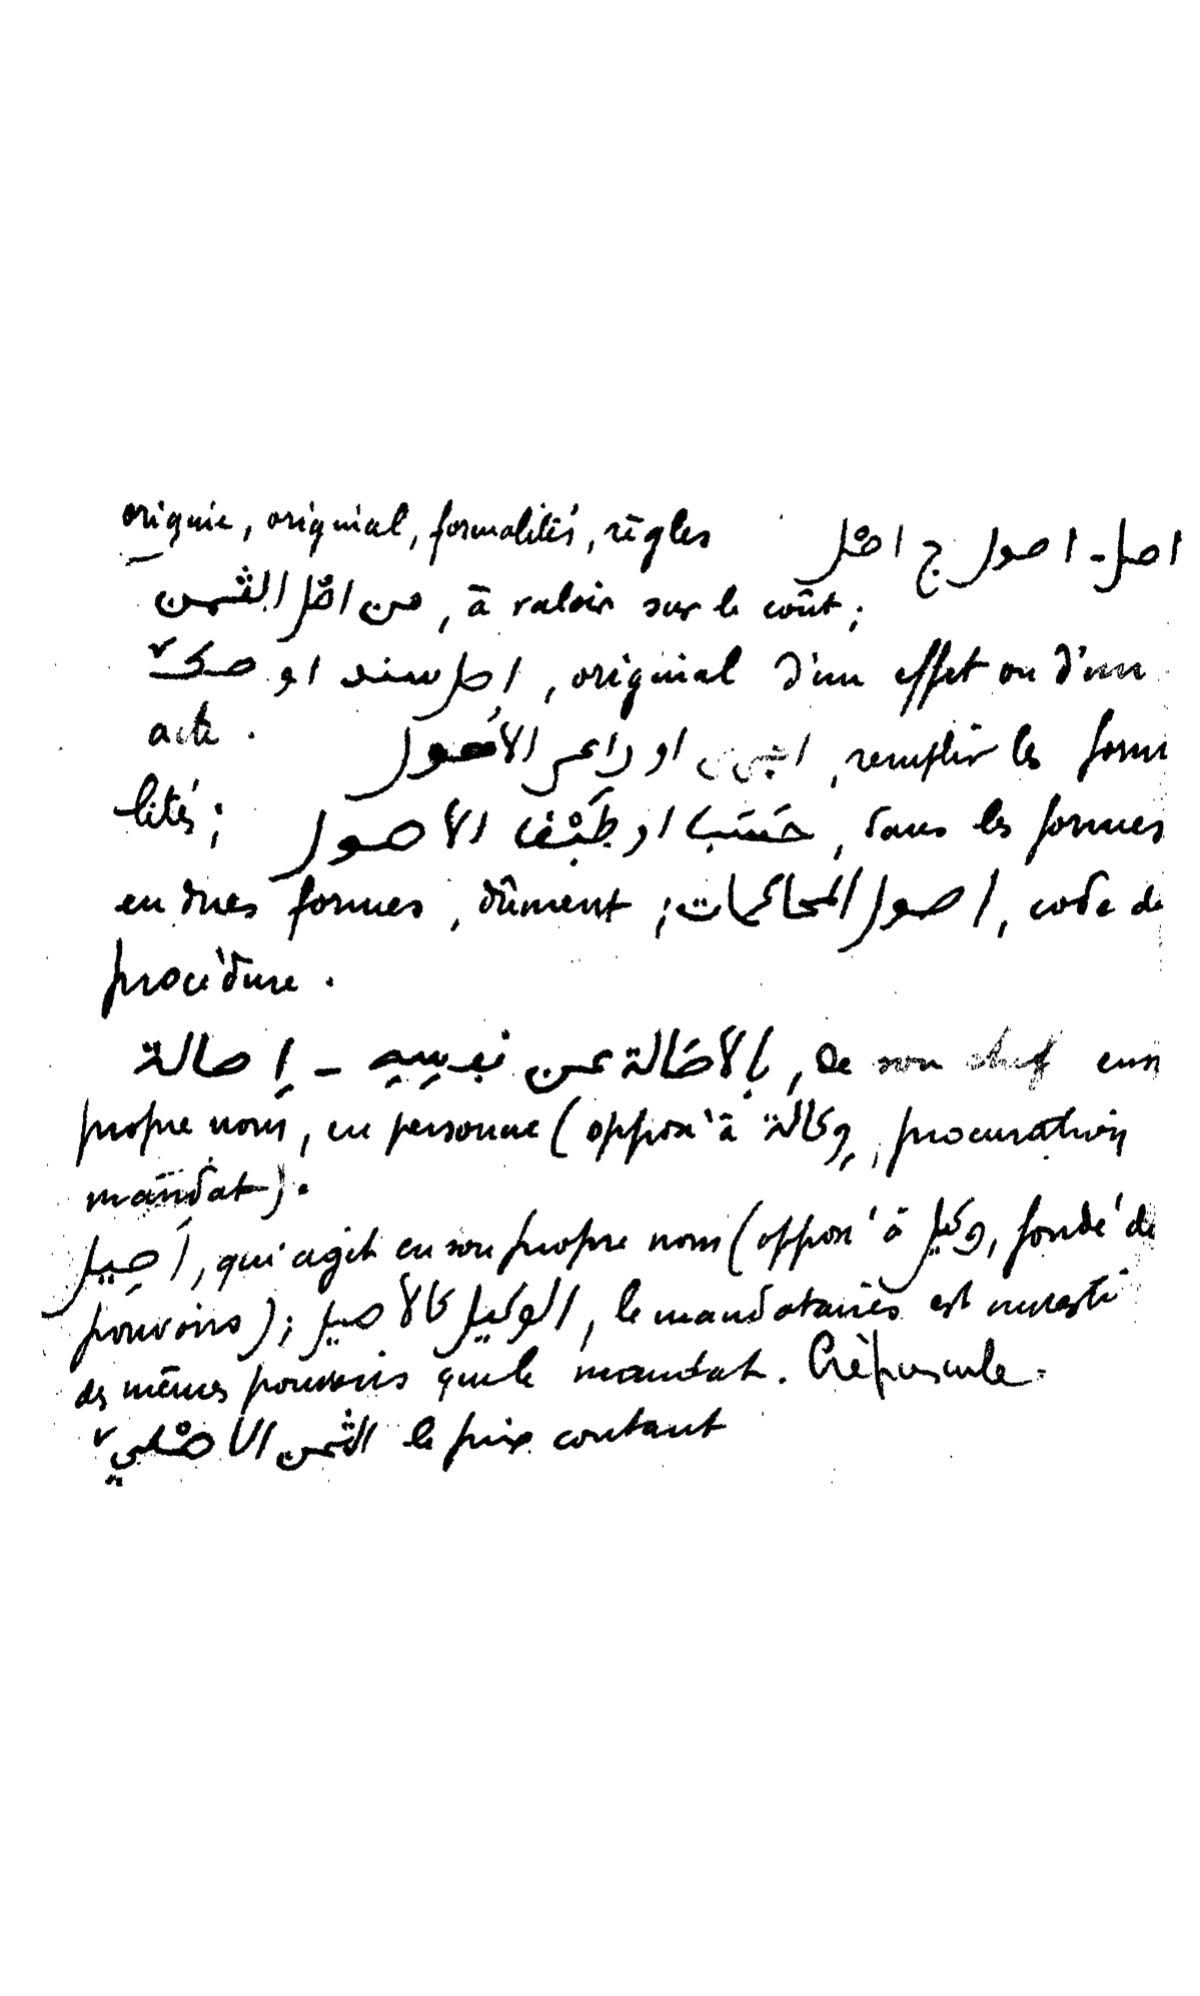 origine, original, formalités, règles اصل - اصول ج اصْل
من اصْل الثمن, à valoir sur le coût;
اصل سند او صكّ, original d'un effet ou d'un
acte. او راعى الأصول, remplir les form
lités; حَسَب او طِبْق الأصول, dans les formes
en dues formes, dûment; اصول المحاكمات, code de
procédure.
إصالة - بالأصَالة عن نفسِهِ, de son chef en
propre nom, en personne (oppos' à وِكالة, procuration
mandat).
أصِيل, qui agit en son propre nom (oppos' à وكيل, fondé de
pouvoirs); الوكيل كالأصيل, le mandataires est investi
des mêmes pouvoirs que le mandat. Crépuscule.
الثمن الأصْليّ le prix coutant